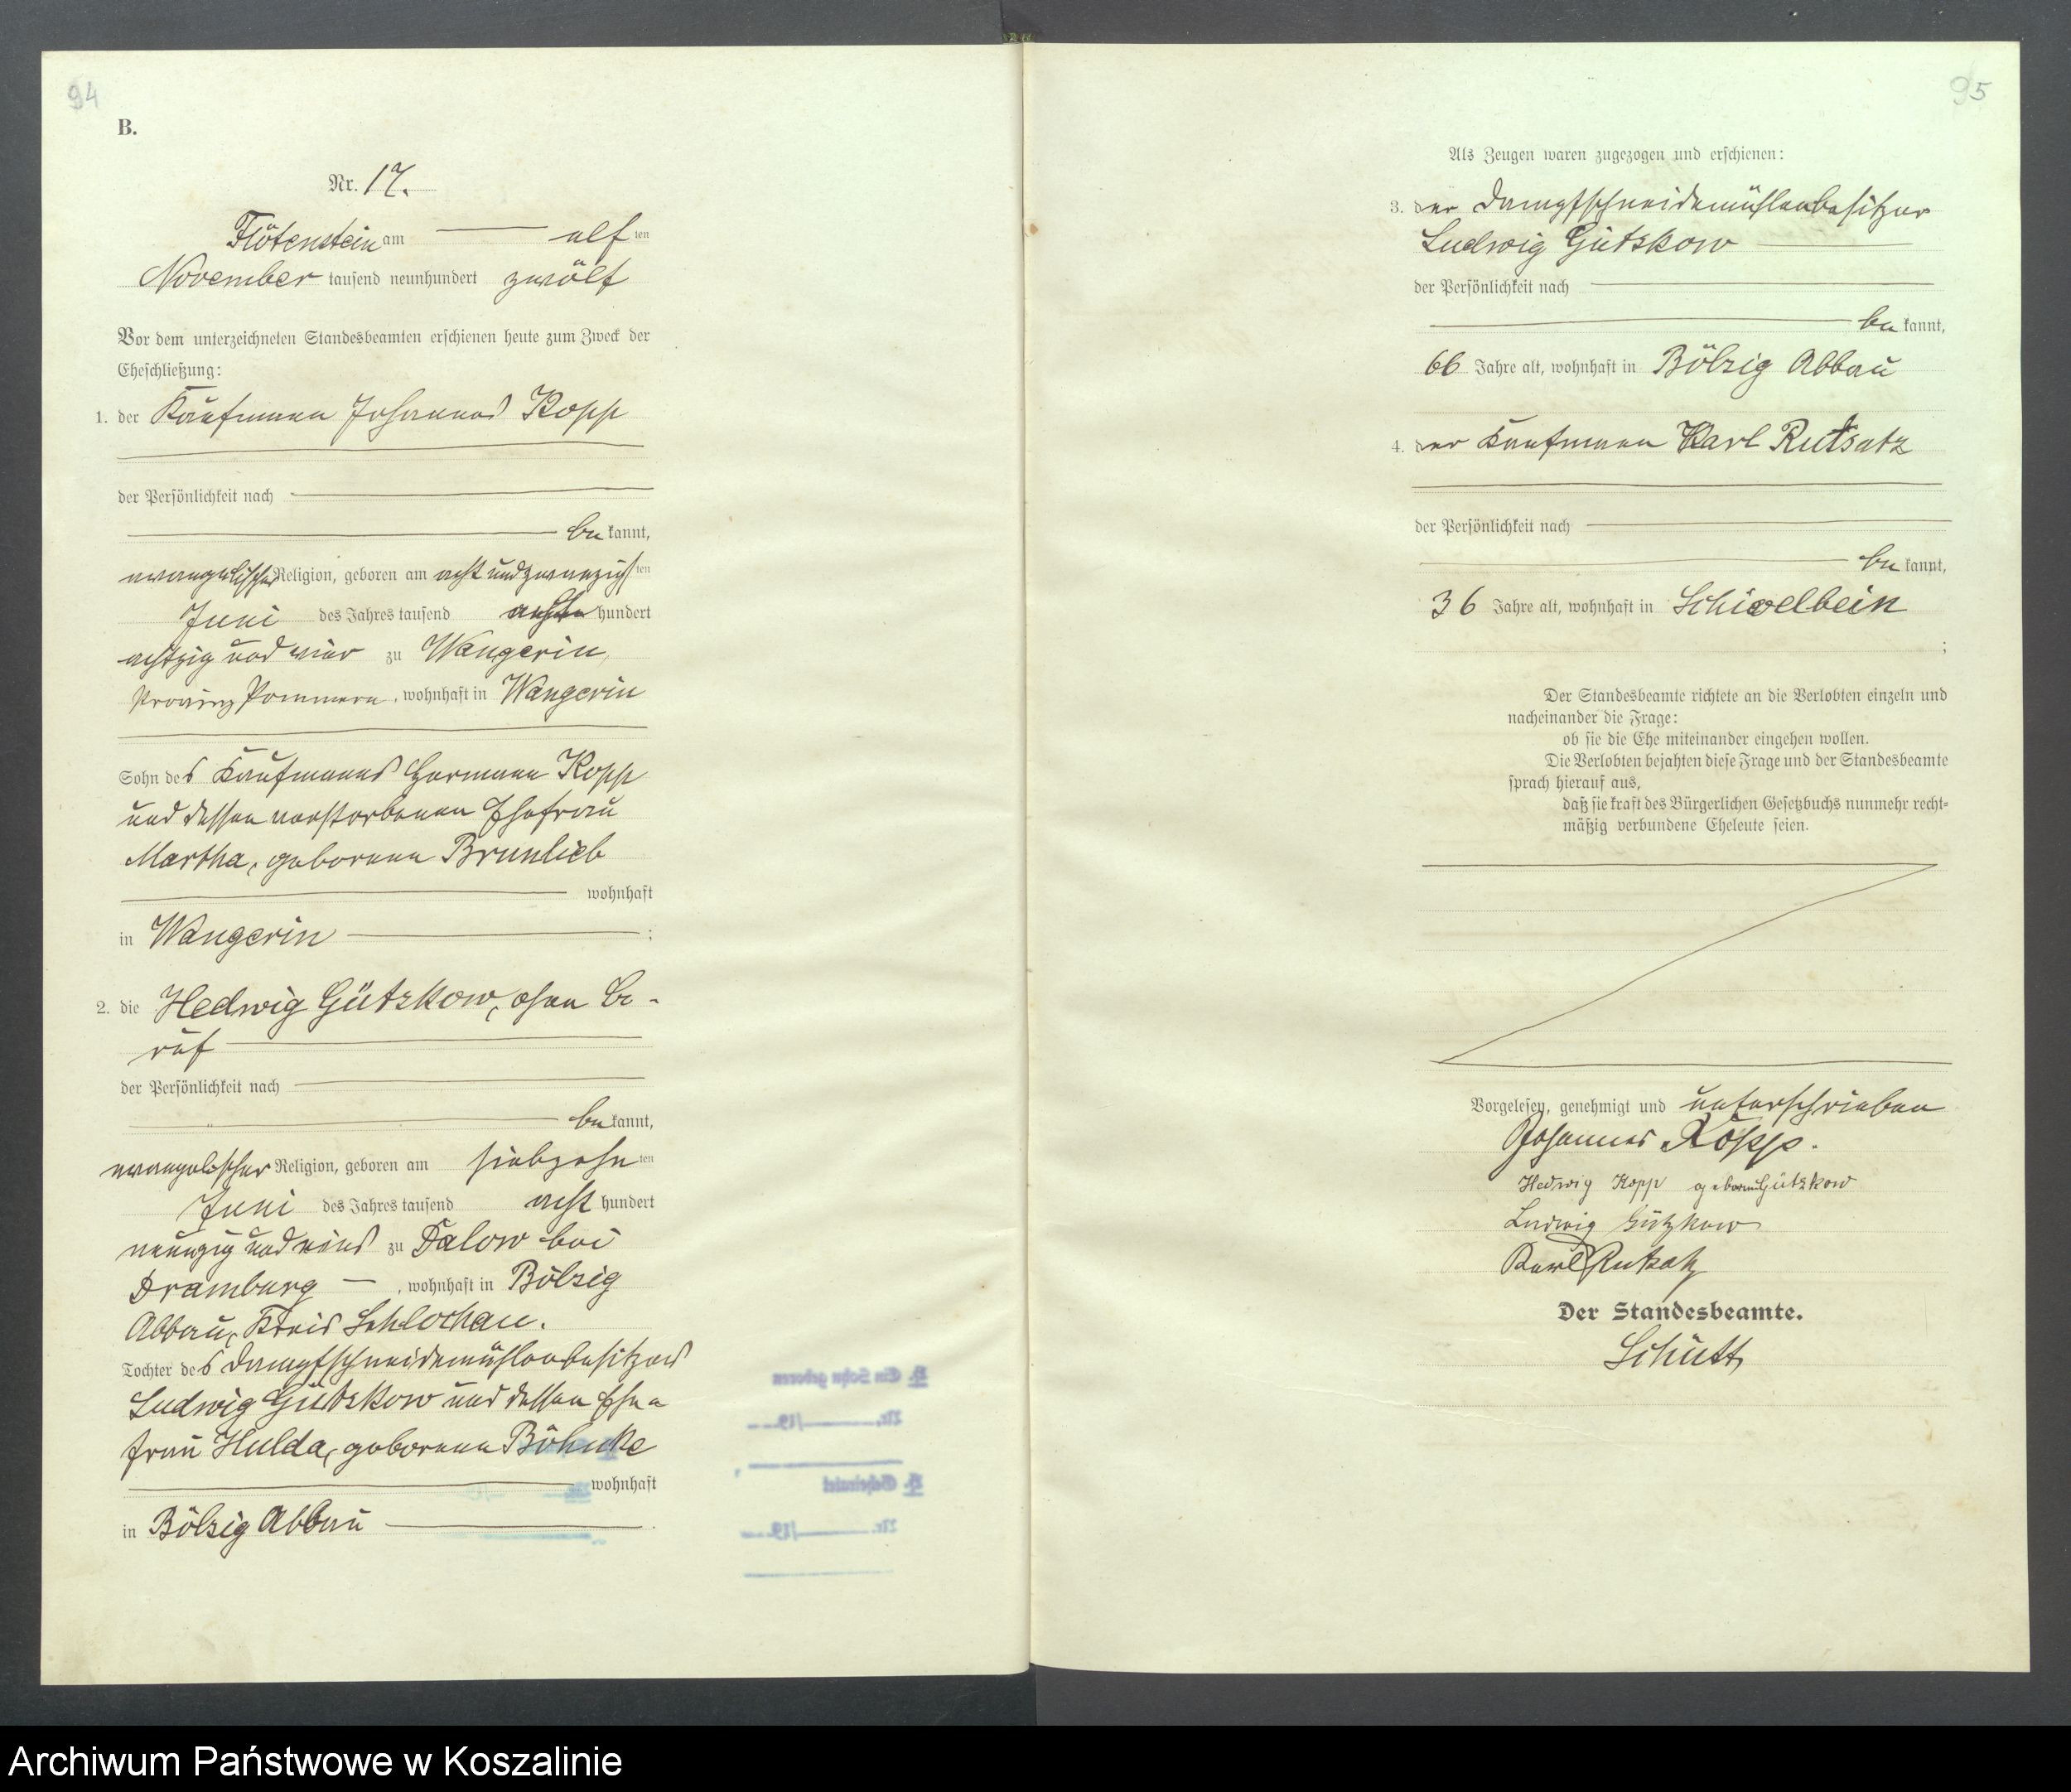 94
B.
Nr. 17.
Flötenstein am elf ten
November tausend neunhundert zwölf
Vor dem unterzeichneten Standesbeamten erschienen heute zum Zweck der
Eheschließung:
1. der Kaufmann Johannes Kopp
der Persönlichkeit nach
be kannt,
evangelischer Religion, geboren am acht und zwanzigs ten
Juni des Jahres tausend acht hundert
achtzig und vier zu Wangerin,
Provinz Pommern, wohnhaft in Wangerin
Sohn des Kaufmanns Hermann Kopp
und dessen verstorbenen Ehefrau
Martha, geborenen Brunlieb
wohnhaft
in Wangerin ;
2. die Hedwig Gützkow, ohne Be-
ruf
der Persönlichkeit nach
be kannt,
evangelischer Religion, geboren am siebzehn ten
Juni des Jahres tausend acht hundert
neunzig und eins zu Dalow bei
Dramburg , wohnhaft in Bölzig
Abbau, Kreis Schlochau.
Tochter des Dampfschneidemühlenbesitzers
Ludwig Gützkow und dessen Ehe-
frau Hulda, geborenen Böhnke
wohnhaft
in Bölzig Abbau .
B. Ein Sohn geboren
Nr. /19
B. Geheiratet
Nr. /19
95
Als Zeugen waren zugezogen und erschienen:
3. der Dampfschneidemühlenbesitzer
Ludwig Gützkow
der Persönlichkeit nach
be kannt,
66 Jahre alt, wohnhaft in Bölzig Abbau
4. der Kaufmann Karl Rutsatz
der Persönlichkeit nach
be kannt,
36 Jahre alt, wohnhaft in Schivelbein
;
Der Standesbeamte richtete an die Verlobten einzeln und
nacheinander die Frage:
ob sie die Ehe miteinander eingehen wollen.
Die Verlobten bejahten diese Frage und der Standesbeamte
sprach hierauf aus,
daß sie kraft des Bürgerlichen Gesetzbuchs nunmehr recht-
mäßig verbundene Eheleute seien.
Vorgelesen, genehmigt und unterschrieben
Johannes Kopp.
Hedwig Kopp geborene Gützkow
Ludwig Gützkow
Karl Rutsatz
Der Standesbeamte.
Schütt
Archiwum Państwowe w Koszalinie